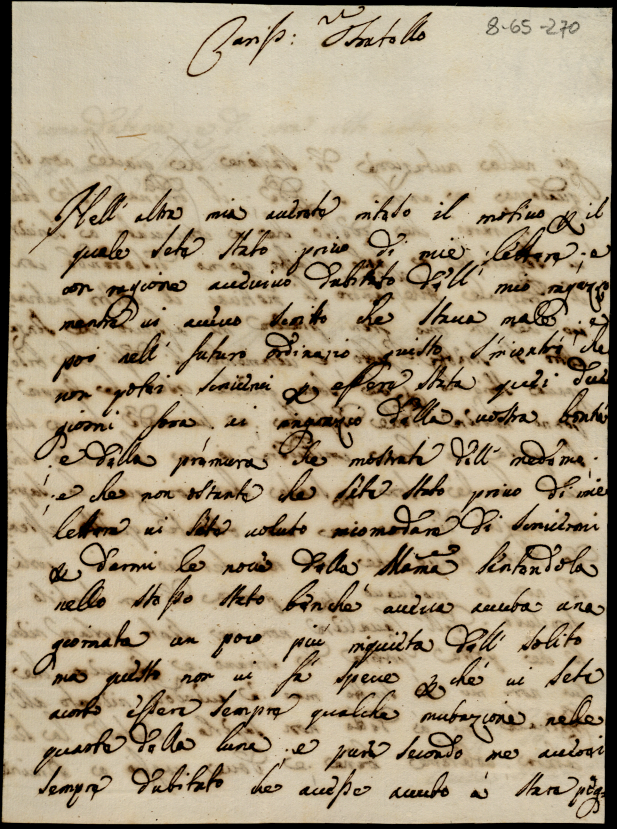 8-65-270
Cariss: Fratello
Nell' altra mia averete inteso il motivo p il
quale sete stato privo di mie lettere, e
con ragione avevivo dubitato dell' mio
mentre vi avevo scrito che stava male e
poi nell' futuro ordinario che
non poter scrivervi p essere stata quasi due
giorni fora vi ringrazio della vostra bontà
e della premura che mostrate dell' medema
e che non ostante che sete stato privo di mie
lettere vi sete voluto incomodare di scrivermi
p darmi le nove della Mama sentendola
nello stesso stato benche aveva avuta una
giornata un poco più inquieta dell' solito
ma questo non vi fà specie p che vi sete
acorto essere sempre qualche mutazione nelle
quarte della luna, e pure secondo me averei
sempre dubitato che avesse avuto à stare peg